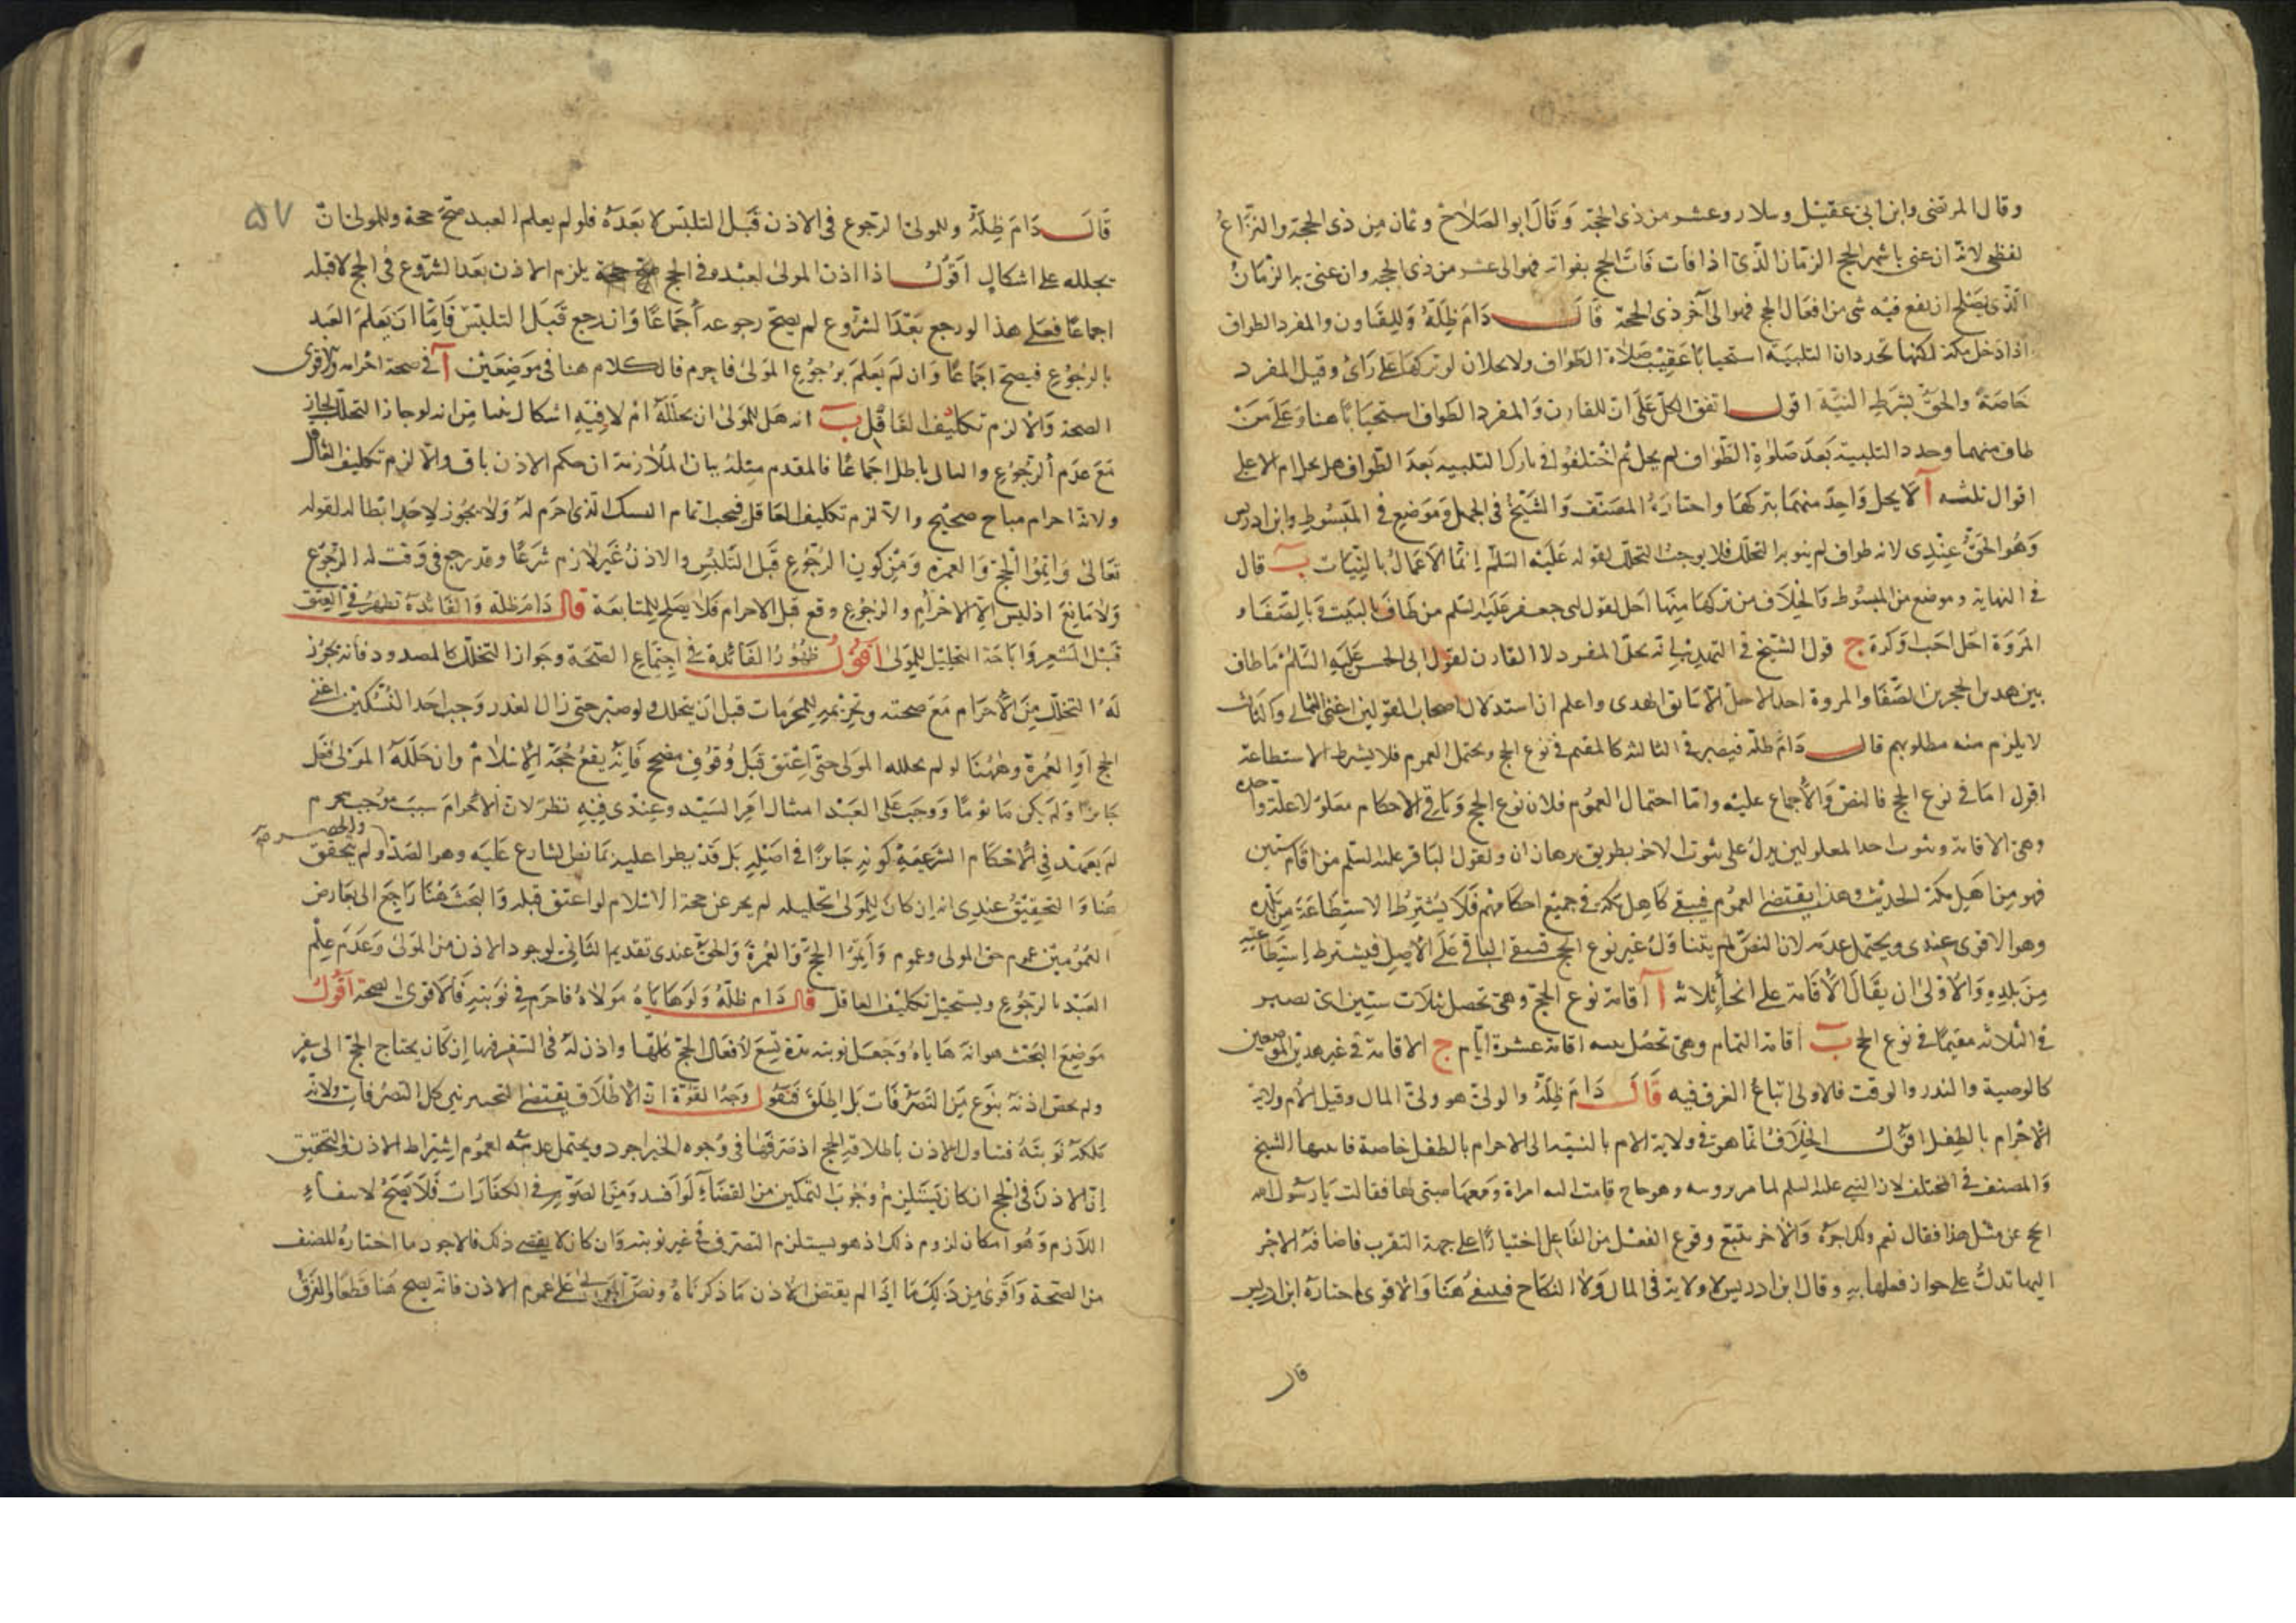 وقال المرتضى وابن ابى عقيل وسلار وعشر من ذى الحجة وَقَالَ ابوالصَلاح وثمان مِن ذى الحجة والنِّزَاعُ
لفظى لانه ان عنى باشهر الحج الزمَان الذّى اذا فات فَاتَ الحج بفواته فهو الى عشر من ذى الحجه وان عنى به الزمَانُ
الّذى يصْلح ان يقع فيْه شى من افعَال الحج فهو الى آخر ذى الحجة قَالَ دَامَ ظِلَّهُ وَلِلقَارن والمفرد الطواف
اذا دَخل مكة لكنهما يجددان التلبيَة استحبابًا عَقِيْبَ صَلاة الطَواف ولا يحلان لو تركهَا عَلَى رَاىْ وقيل المفرد
خَاصَةً والحقّ بشرَطِ النيَّة اقول اتفق الكلّ عَلَى انّ للقارن وَالمفرد الطَواف استحبَابًا هنا وَعَلَى مَنْ
طاف منهما وجدد التلبية بَعدَ صَلوٰةِ الطّوَاف لم يحل ثم اخْتلفُوا فى تارك التلبيه بَعدَ الطّواف هل يحل ام لا على
اقوال ثلثه آ لَا يحل وَاحِدٌ منهمَا بتركهَا واختارَهُ المصَنّف وَالشّيْخُ فى الجمل وَمَوضع فى المَبْسُوطِ وابن ادريس
وَهُوَ الحَقُّ عِنْدِى لانه طواف لم ينو به التحلل فلا يوجبُ التحلل لقوله عَلَيْه السّلمْ اِنّمَا الاَعمَالُ بالنّيَات ب قال
فى النهاية وموضع من المبسُوط وَالخلَاف من تركهَا مِنهمَا احَل لقول ابى جعفر عَلَيْه السّلم من طَافَ بالبَيت وَبالصّفَا و
المَروَة احَل احَبّ اوْ كَرهَ ج قول الشّيْخ فى التهذيب انه يحلّ المفرد لا القارن لقول ابى الحسن عَلَيْهِ السَّلَمْ مَا طاف
بين هذين الحجرين الصّفَا والمروة احد الا حلّ الّا سَائق الهدى واعلم ان استدلال اصحاب القولين اعْنى الثانى وَالثالث
لا يلزم منه مطلوبهم قال دَامَ ظلّه فيصير فى الثالثه كالمقيم فى نوع الحج ويحتمل العموم فلا يشترط الاستطاعة
اقول امَا فى نوع الحج فالنصّ وَالاجماع عليْه وامّا احتمال العمُوم فلان نوع الحج وَبَاقى الاحكام معلولا علة واحده
وهى الاقامة وثبوت احد المعلولين يدلّ على ثبوت الاخر بطريق برهان ان ولقول البَاقر عليه السلم من اقام سنتين
فهو مِن اهل مكة الحديث وهذا يقتضى العمُوم فيبقى كاهل مكة فى جميْع احكامهم فَلَا يُشترَطُ الاستطاعَة مِن بَلَدِه
وهو الاقوى عندى ويحتمل عدمه لان النصَّ لم يتناوَلْ غير نوع الحج فيبقى الباقى عَلَى الاصِل فيشترط استِطَاعته
مِنْ بَلدِهِ وَالاوْلىٰ ان يقَالَ الاقَامة على انحاءِ ثلاثة آ اقامة نوع الحجّ وهى تحصل بثلَاث سنين اى يصير
فى الثلاثه مقيمًا فى نوع الحج ب اقامة التمام وهى تحصُل بنيه اقامة عشرة ايّام ج الاقامة فى غير هذين الموضعين
كالوصية والنذر والوقت فلاولى اتباعُ العرف فيه قَالَ دَامَ ظِلّهُ والولىّ هو ولىّ المال وقيل للام ولاية
الاحْرام بالطِفل اقول الخِلَافُ انّما هو فى ولاية الام بالنسْبَه الى الاحرام بالطفل خاصة فاثبتها الشيخ
وَالمصنف فى المختلف لان النبى عليه السلم لما مر برويسه وهو حاج قامت اليه امراة وَمعهَا صبىّ لها فقالت يَا رَسُول الله
الحج عن مثل هذا فقال نعم ولك اجرَه وَالاجر يتبع وقوع الفعْل من الفَاعِل اختيَارًا على جهة التقرب فاضافة الاجر
اليها تدلُ على جواز فعلها به وقال ابن ادريس لا ولاية فى المال وَلا النكَاح فينتفى هُنَا وَالاقوى ما اختارَهُ ابن ادريس
قال
٥٧
قَالَ دَامَ ظِلّهُ وللمولىٰ الرّجوع فى الاذن قَبْل التلبس لا بَعَدَهُ فلو لم يعلم العبد صَحّ حجه وللمولىٰ انْ
يحلله على اشكالٍ اَقوُل اذا اذن المولىٰ لعبْده فى الحج يلزم الاذن بعَد الشرّوع فى الحج لا قبله
اجماعًا فعَلى هذا لو رجع بعَدَ الشرُوع لم يصحّ رجوعه اِجمَاعًا وَان رجع قَبَل التلبّسْ فَامّا انْ يَعلَمَ العَبد
بالرجُوعِ فيصحّ اجمَاعًا وَان لمَ يَعلَمَ برُجُوْعِ المَولىٰ فاحرم فالكلام هنا فى مَوضِعَيْن آ فى صحة احْرامه والاقوى
الصحة وَالّا لزم تكليْف الغَافل ب انه هَل للمَولىٰ ان يحللَهُ امْ لا فيْهِ اشكال ينشا مِن انه لو جاز التحلل لجاز
مَعَ عدَم الرّجُوعِ والتالى باطل اجمَاعًا فالمقدم مِثلهُ بيان الملَازمة ان حكم الاذن باق والّا لزم تكليف الغافل
ولانّه احرام مباح صحيْح والّا لزم تكليف الغافل فيجب اتمام النسك الذى احرم له وَلا يجُوز لاحدٍ ابطاله لقوله
تعَالىٰ وَاتِمُوُا الْحَجّ وَالعمرَةِ وَمَنْ كون الرّجُوع قَبْل التّلبُس والاذنُ غَيْرُ لَازم شَرعًا وقد رجع فى وَقت له الرّجُوع
وَلا مَانِعَ اذ ليسَ الا الاحْرام والرجُوع وقع قبل الاحرام فَلَا يَصْلح للمانعَة قال دَامَ ظلّه وَالفَائدة تظهرُ فى العِتق
قَبْل المشعِر وَابَاحَة التحليْل للمَولىٰ اَقُوُل ظهُورُ الفَائدة فى اجتِمَاعِ الصّحَة وجواز التحلل كالمصدود فانه يجوُز
لَهُ التحلل مِنَ الاحْرَام مَعَ صحته وتحْريمه للمحرَمات قبل ان يتحلل ولو صَبر حتى زال العذر وَجبَ احَد النُسْكين اعنى
الحج اَوِ العُمرَة وهٰهُنَا لو لم يحلله المَولىٰ حَتّى اُعْتِق قَبْل وُقوُفٍ مصحح فَانّهُ يقعُ حُجّة الاسْلامْ وان حَلَلَهُ المَولىٰ فعَل
جَائزًا وَلم يكن مَاثُومًا وَوجَبَ عَلى العَبْد امتثال امْر السَيّد وعِنْدى فِيْهِ نظر لانّ الاحْرام سَببٌ موُجبٌ يحرم
لم يعهَد فى الاحْكَام الشرعيةِ كونه جَائزًا فى اصْلِهِ بَل قَدْ يطرا عليه مَا نصّ الشارع عَلَيَه وهو الصَدّ والحصر ولم يتحقق
هُنا وَالتحقيْقُ عندِى انه اِن كان لِلمَولىٰ تحليله لم يجز عن حجة الاسْلام لو اعتق قبله وَالبَحثُ هُنَا رَاجع الى تعارض
العُمُومَيْن عموم حق المولى وعموم وَاَتِمّوُا الحَجّ وَالعُمرَةَ وَالحَقّ عندى تقديم الثَانىْ لوجود الاذن من المَولىٰ وَعَدَم عِلْم
العَبْد بالرجُوْعِ ويستحيْل تكليْف الغافل قال دَامَ ظلّهُ وَلَو هَايَاهُ مَولَاهُ فاحرَم فى نَوبتِهِ فَالاقوى الصحة اَقُوُل
مَوضِعَ البحْث هو انه هَايَاهُ وَجَعَل نوبته مدة تسَعُ لافعَال الحجّ كلهَا واذن لَهُ فى السَفر فيهَا اِن كَان يحتاج الحجّ الى سفر
ولم يخصّ اذنَهُ بنوَعٍ مِنَ التَصَرّفَات بَل اطلَق فَنَقُوُل وَجهُ القوَّة انّ الاطْلَاق يقتضى التخيير فى كل التصَرُفاتِ ولانّه
مَلكَهُ نَوبتَهُ فتناول الاذن باطلاقِهِ الحجَ اذ صَرفهَا فى وُجوه الخير اجود ويحتمل عدمه لعمُوم اشتِراط الاذن والتحقيق
انّ الاذنَ فى الحج ان كان يَستَلزِمُ وُجُوْبَ التمكين من القضَاءِ لَو افسد وَمِنَ الصَومِ فى الكفَارَات فَلَا يَصّحُ لانتفاءِ
اللَازم وَهُوَ امكان لزوم ذلكَ اذ هو يستلزم التصرف فى غير نوبته وَان كان لا يقتضى ذلكَ فالاجود ما اختارهُ المصنف
من الصّحة وَاَقوىٰ مِن ذلِكَ مَا اِذَا لم يقتض الاذن مَا ذكرنَاهُ ونصّ المولى عَلى عموم الاذن فانه يصح هُنا قَطعًا والفرَقُ